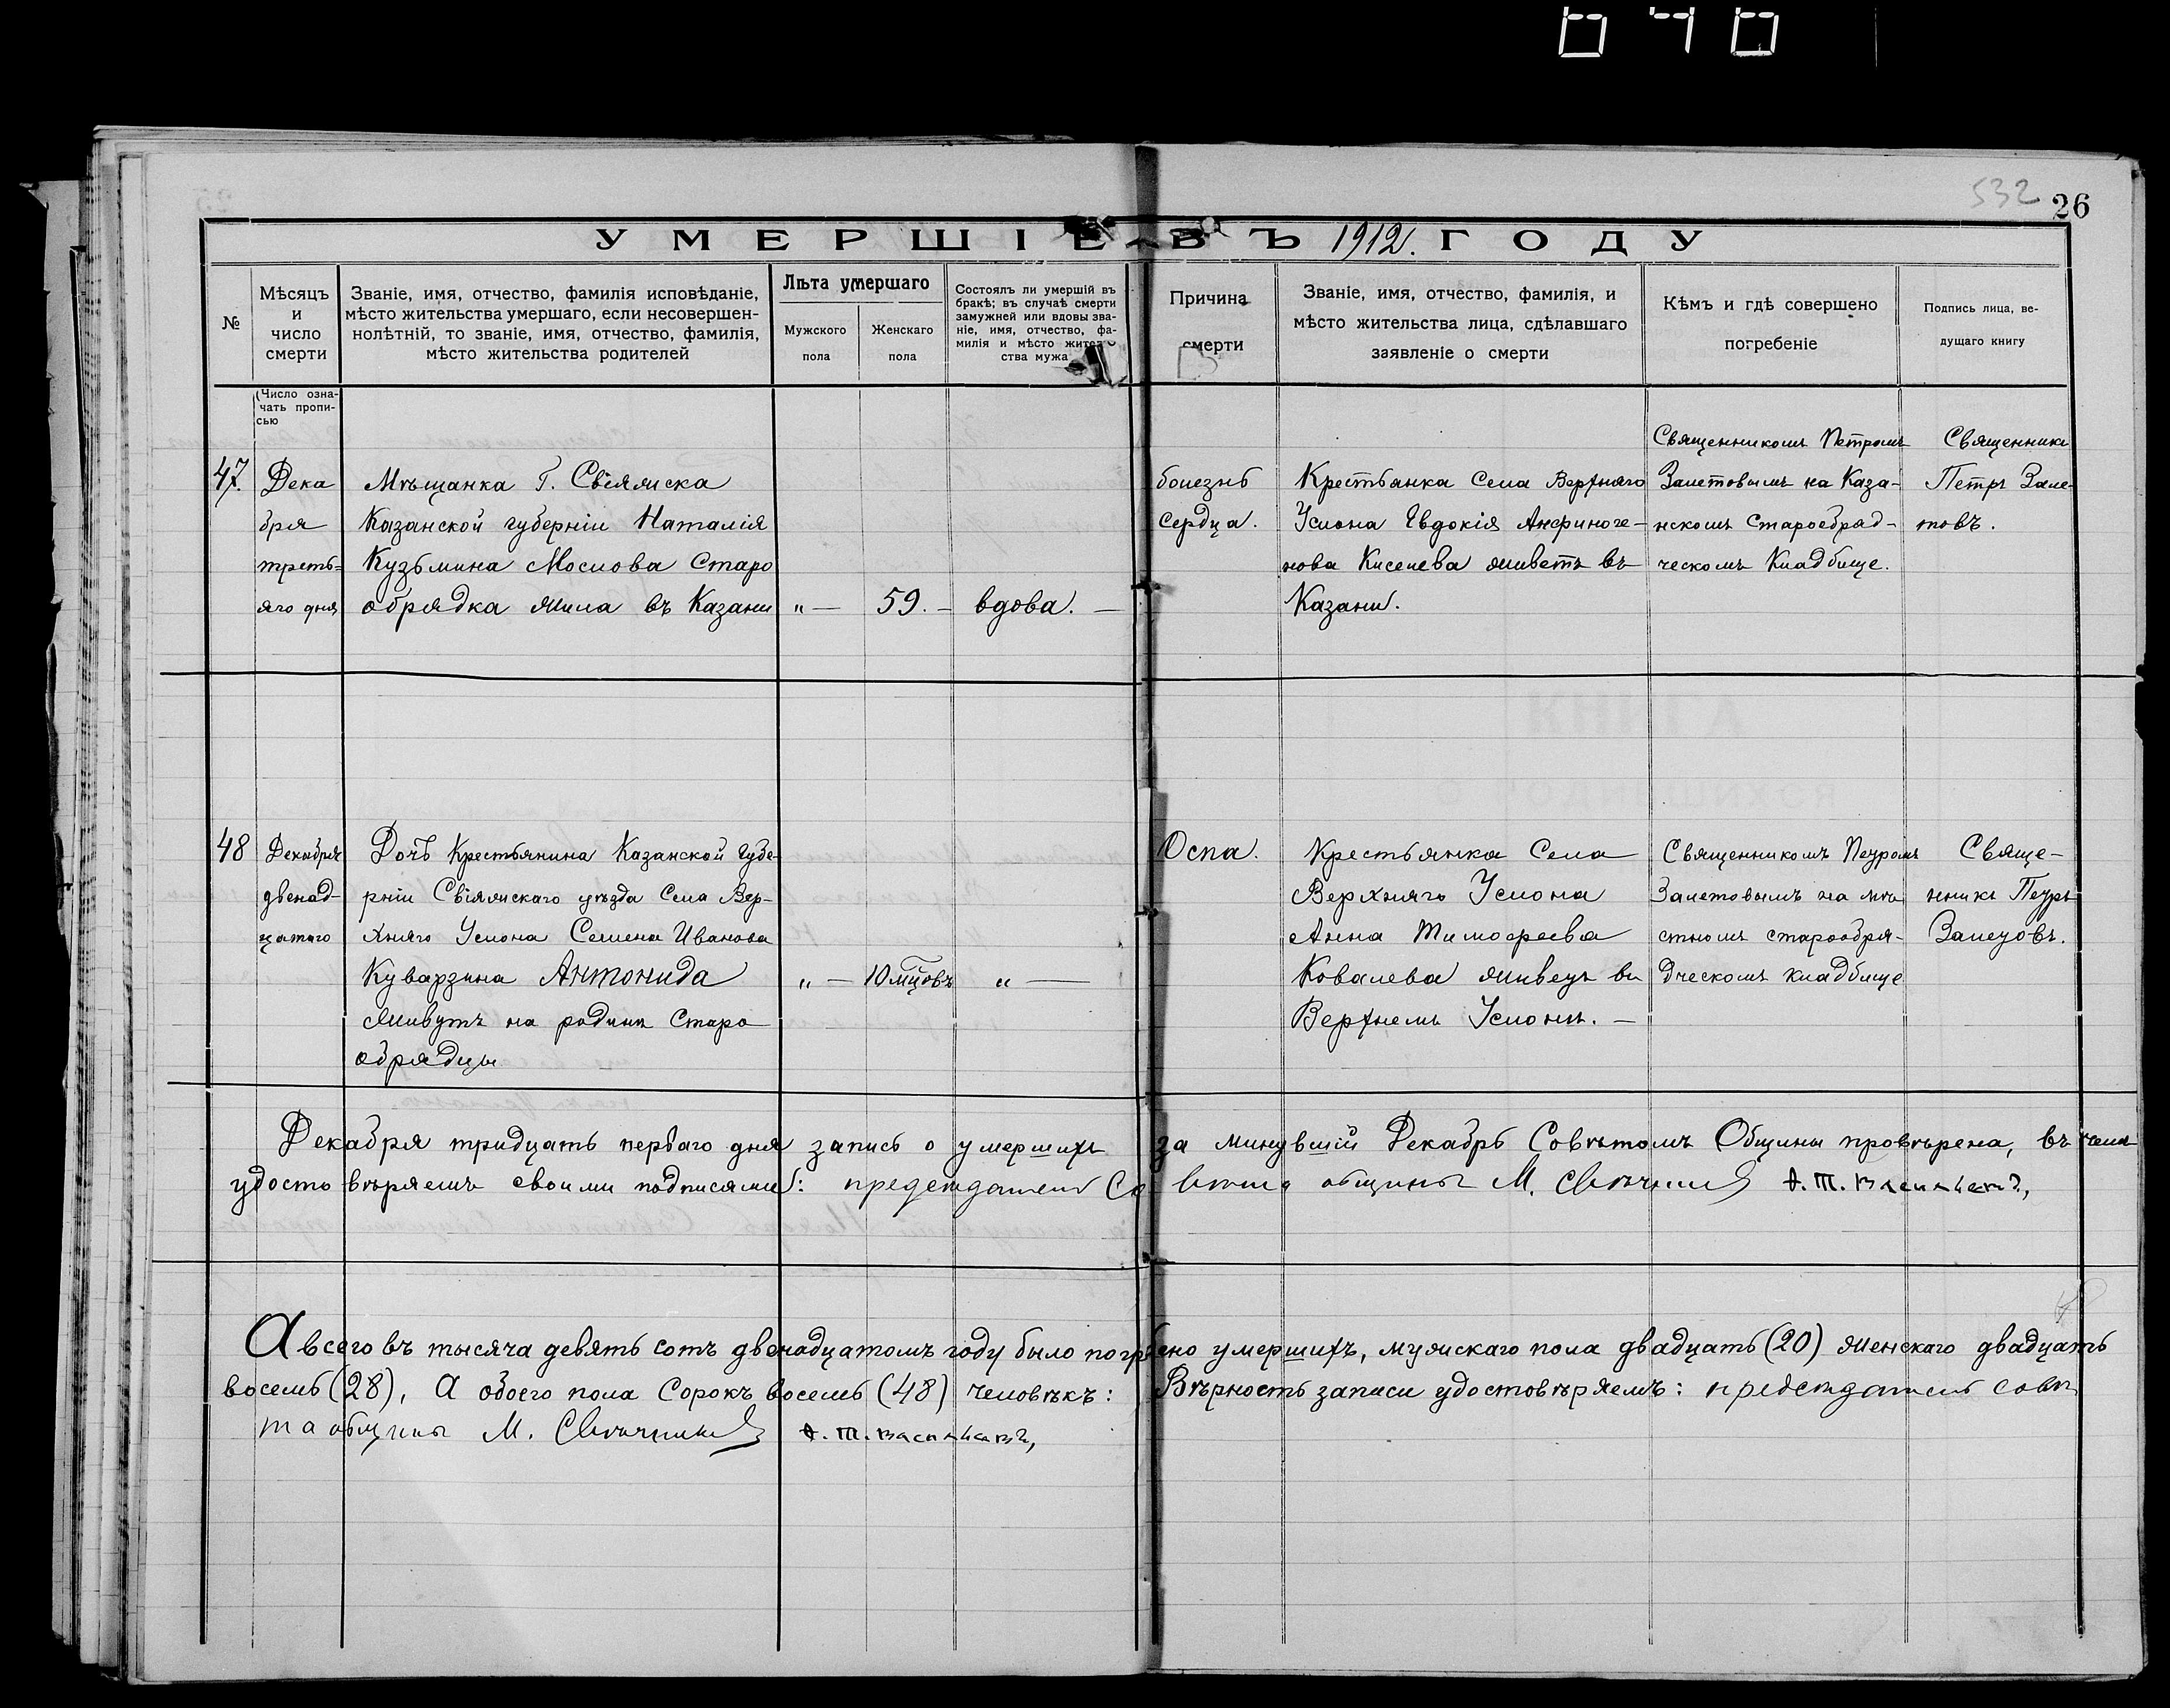 532 26
УМЕРШІЕ ВЪ 1912. ГОДУ
№
Мѣсяцъ и число смерти
Званіе, имя, отчество, фамилія исповѣданіе,
мѣсто жительства умершаго, если несовершен-
нолѣтній, то званіе, имя, отчество, фамилія,
мѣсто жительства родителей
Лѣта умершаго
Мужского пола
Женскаго пола
Состоялъ ли умершій въ
бракѣ; въ случаѣ смерти
замужней или вдовы зва-
ніе, имя, отчество, фа-
милія и мѣсто жител
ства мужа
Причина
смерти
Званіе, имя, отчество, фамилія, и
мѣсто жительства лица, сдѣлавшаго
заявленіе о смерти
Кѣмъ и гдѣ совершено
погребеніе
Подпись лица, ве-
дущаго книгу
(Число озна-
чать пропи-
сью
47.
Дека
бря
треть-
яго дня
Мѣщанка Г. Свіяжска
Казанской губерніи Наталія
Кузьмина Маслова Старо
обрядка жила въ Казани
„ —
59. —
вдова. —
болезнь
Сердца.
Крестьянка Села Верхняго
Услона Евдокія Анфиноге-
нова Киселева живетъ въ
Казани.
Священникомъ Петромъ
Залетовымъ на Каза-
нскомъ Старообряд-
ческомъ Кладбище.
Священникъ
Петръ Зале-
товъ.
48
Декабря
двенад-
цатого
Дочь Крестьянина Казанской губе-
рніи Свіяжскаго уѣзда Села Вер-
хняго Услона Семена Иванова
Куварзина Антонида
Живутъ на родинѣ Старо
обрядцы
„ —
10 мѣцовъ
„ —
Оспа.
Крестьянка Села
Верхняго Услона
Анна Тимофеева
Ковалева живетъ въ
Верхнемъ Услонѣ. —
Священникомъ Петромъ
Залетовымъ на мѣ
стномъ старообря-
дческомъ кладбище
Свяще-
нникъ Петръ
Залетовъ.
Декабря тридцать перваго дня запись о умершихъ за минувшій Декабрь Совѣтомъ Общины провѣрена, въ чемъ
удостовѣряемъ своими подписями: председатель Совѣта общины М. Свѣчник Ф. Т. Васильевъ,
А всего въ тысяча девять сотъ двенадцатомъ году было погребено умершихъ, мужскаго пола двадцать (20) женскаго двадцать
восемь (28), А обоего пола Сорокъ восемь (48) человѣкъ: Вѣрность записи удостовѣряемъ: председатель совѣ
та общины М. Свѣчник Ф. Т. Васильевъ,